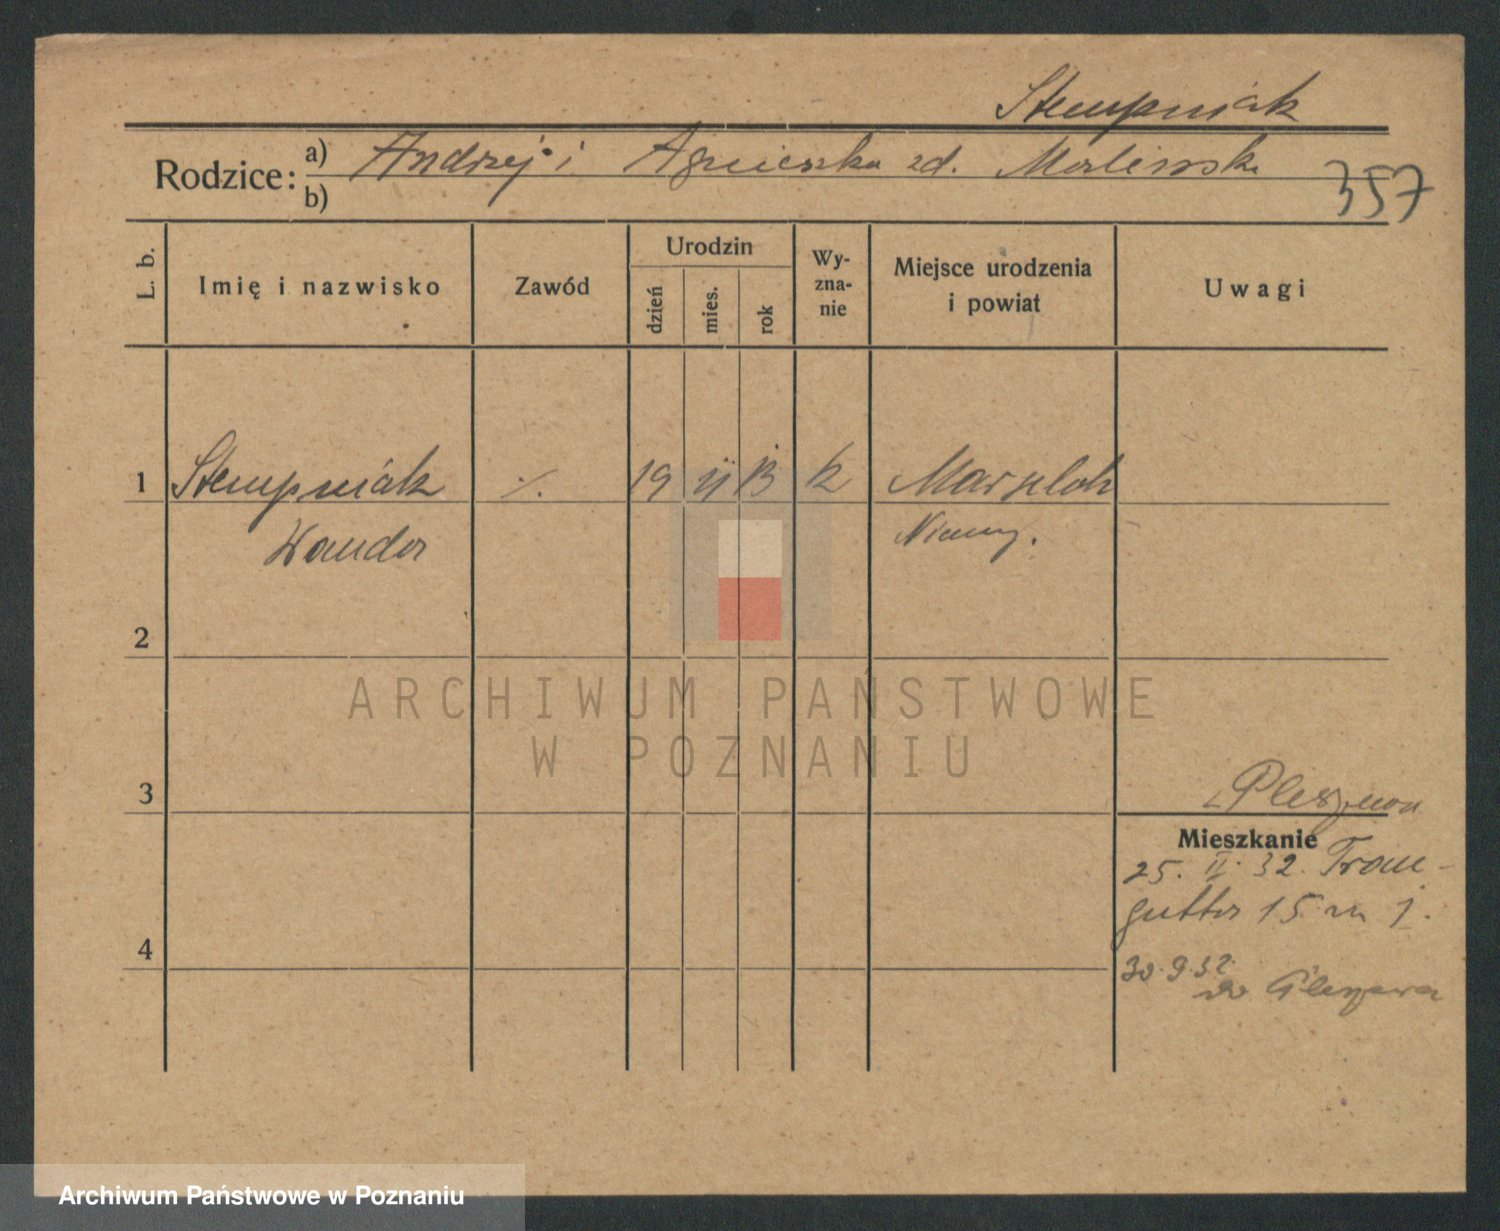 Stempniak
Rodzice: a) Andrzej i Agnieszka zd.
b)
357
L. b.
Imię i nazwisko
Zawód
Urodzin
dzień
mies.
rok
Wy-
zna-
nie
Miejsce urodzenia
i powiat
Uwagi
1 Stempniak ./. 19 13 k Marxloh
Wanda Niemcy.
2
ARCHIWUM PAŃSTWOWE
W POZNANIU
3
Mieszkanie
25. II. 32. Trau-
gutta 15 m 1.
4
30.9.32
do Pleszewa
Archiwum Państwowe w Poznaniu